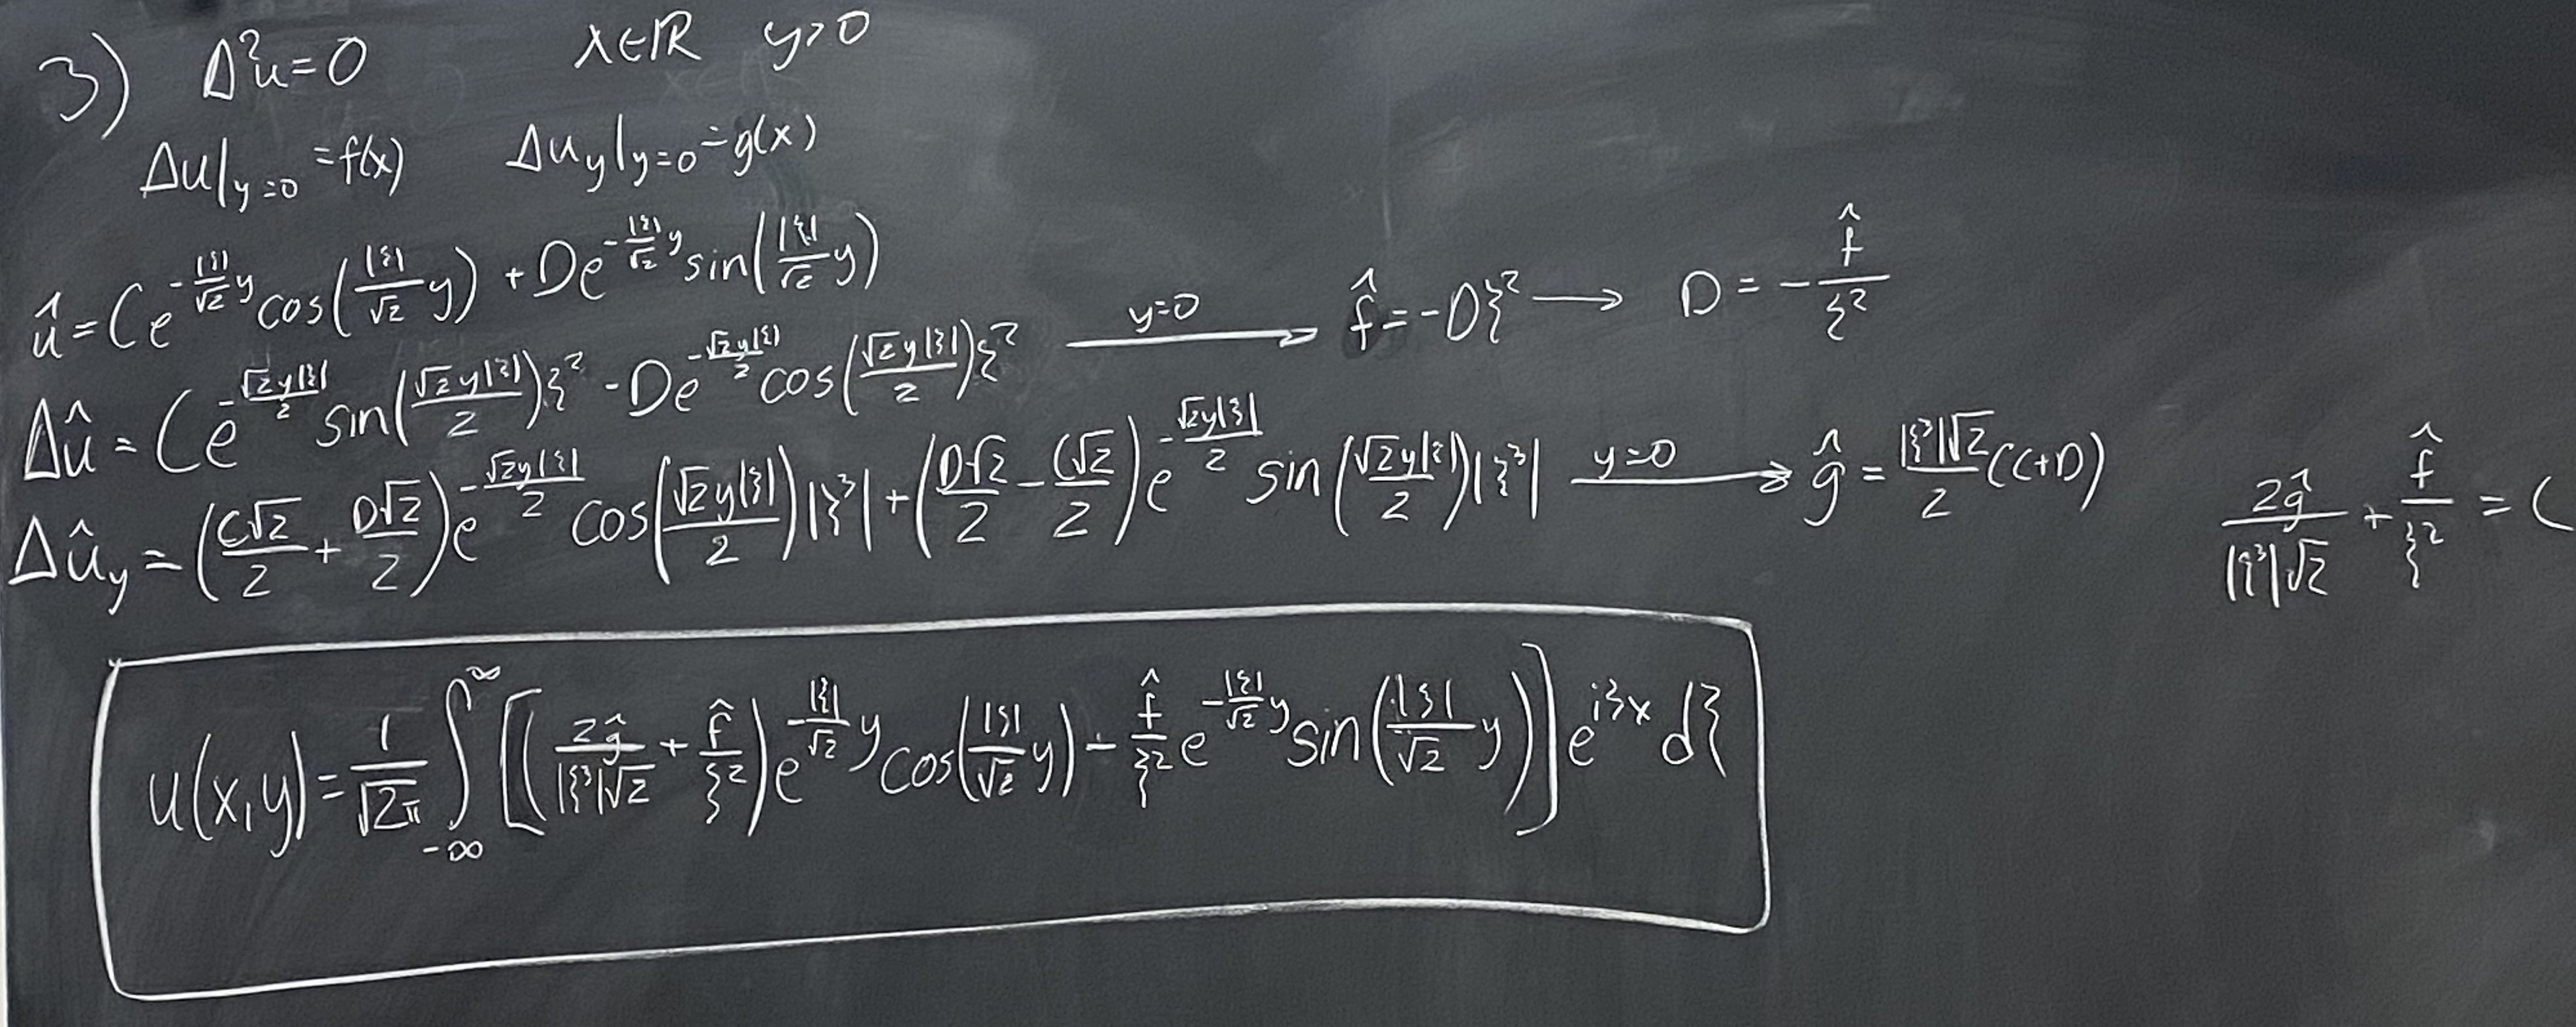 3) Δ²u=0 x∈ℝ y>0
Δu|_{y=0} = f(x) Δu_y|_{y=0} = g(x)
û = C e^{-\frac{|ξ|}{√2}y} cos(\frac{|ξ|}{√2}y) + D e^{-\frac{|ξ|}{√2}y} sin(\frac{|ξ|}{√2}y)
Δû = C e^{-\frac{√2y|ξ|}{2}} sin(\frac{√2y|ξ|}{2})ξ² - D e^{-\frac{√2y|ξ|}{2}} cos(\frac{√2y|ξ|}{2})ξ² \xrightarrow{y=0} \hat{f} = -Dξ² → D = -\frac{\hat{f}}{ξ²}
Δû_y = (\frac{C√2}{2} + \frac{D√2}{2}) e^{-\frac{√2y|ξ|}{2}} cos(\frac{√2y|ξ|}{2})|ξ³| + (\frac{D√2}{2} - \frac{C√2}{2}) e^{-\frac{√2y|ξ|}{2}} sin(\frac{√2y|ξ|}{2})|ξ³| \xrightarrow{y=0} \hat{g} = \frac{|ξ³|√2}{2}(C+D) \frac{2\hat{g}}{|ξ³|√2} + \frac{\hat{f}}{ξ²} = C
u(x,y) = \frac{1}{√2π} ∫_{-∞}^{∞} [(\frac{2\hat{g}}{|ξ³|√2} + \frac{\hat{f}}{ξ²}) e^{-\frac{|ξ|}{√2}y} cos(\frac{|ξ|}{√2}y) - \frac{\hat{f}}{ξ²} e^{-\frac{|ξ|}{√2}y} sin(\frac{|ξ|}{√2}y)] e^{iξx} dξ